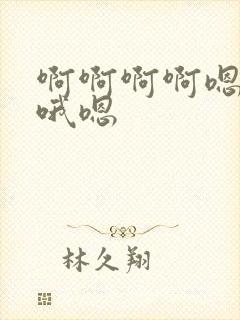 啊啊啊啊嗯
哦嗯
林久翔